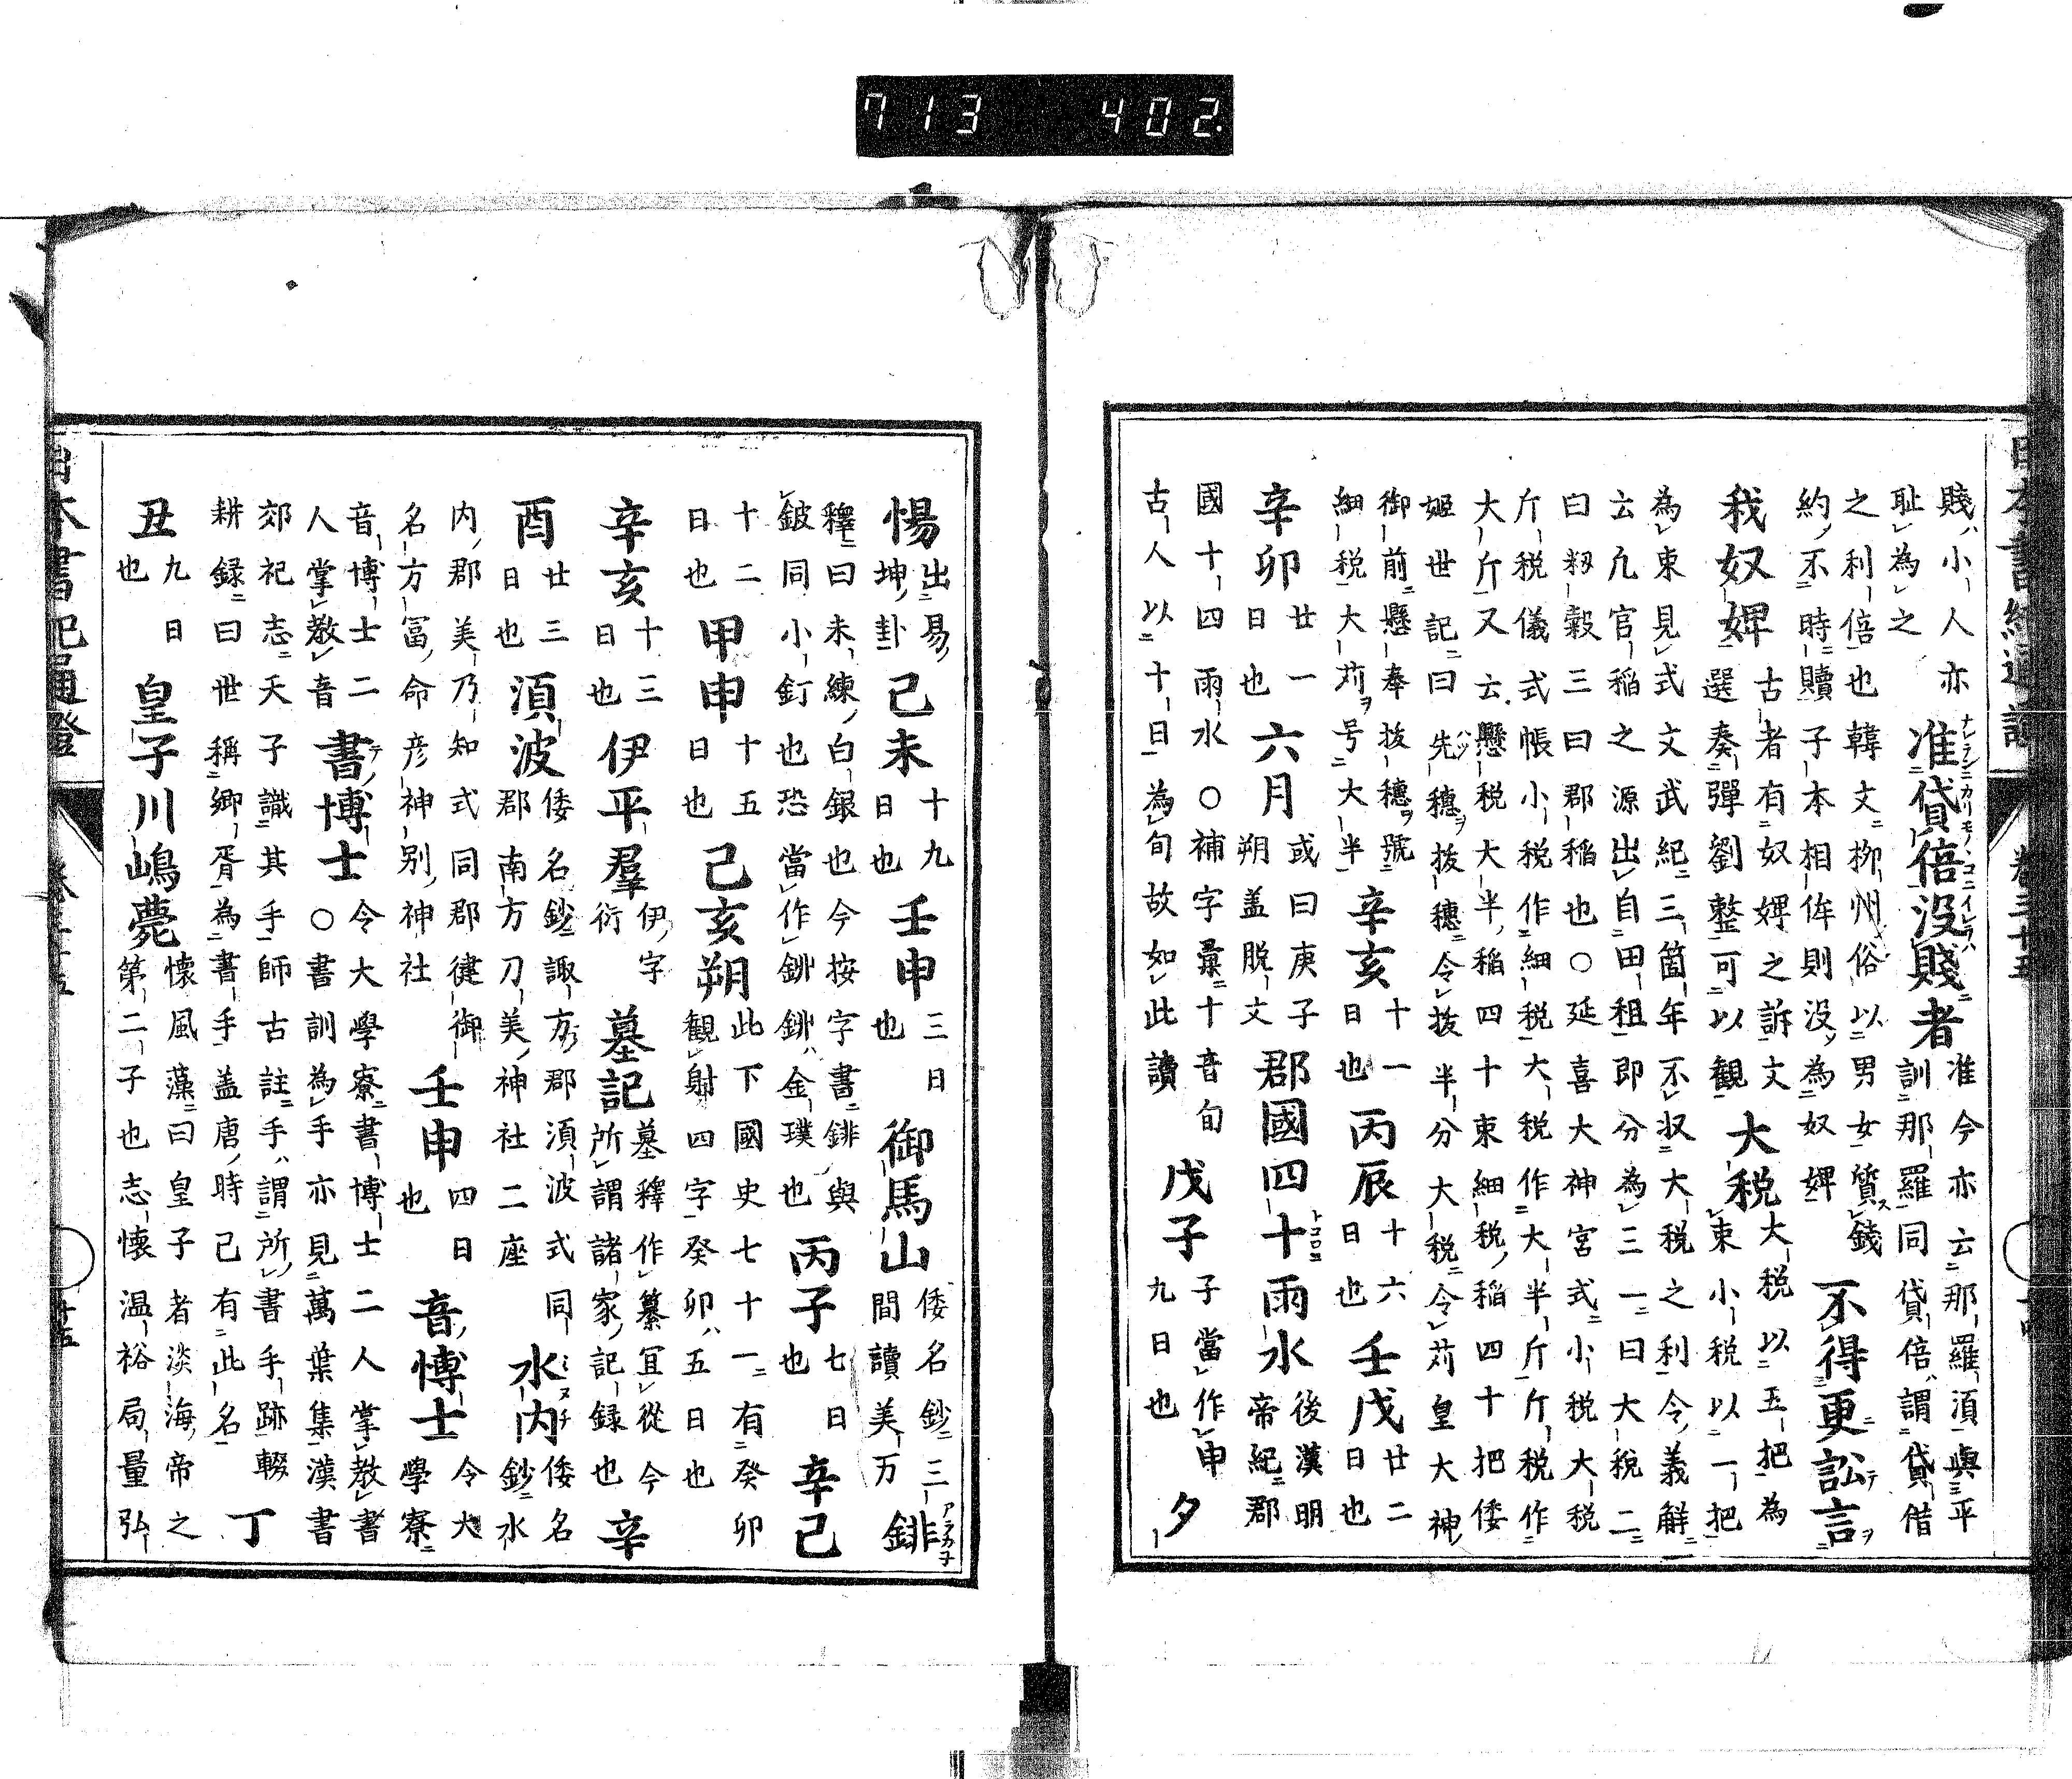 日本書紀通證 卷三十五
賤小人亦恥為之准貸倍没賤者准今亦云那羅須與平訓那羅同貸倍謂貸借
之利倍也韓文柳州俗以男女質錢約不時贖子本相侔則没為奴婢不得更訟言
我奴婢古者有奴婢之訴文選奏彈劉整可以觀大税大税以五把為束小税以一把
為束見式文武紀三箇年不収大税之利令義解云凢官稲之源出自田租即分為三一曰大税二
曰籾穀三曰郡稲也○延喜大神宮式小税大税斤税儀式帳小税作細税大税作大半斤斤税作
大斤又云懸税大半稲四十束細税稲四十把倭姬世記曰先穗抜穗令抜半分大税令苅皇大神
御前懸奉抜穗號細税大苅号大半辛亥十一日也丙辰十六日也壬戊廿二日也
辛卯廿一日也六月或曰庚子朔盖脱文郡國四十雨水後漢明帝紀郡
國十四雨水○補字彙十音旬古人以十日為旬故如此讀戊子子當作申九日也夕
惕出易坤卦己未十九日也壬申三日也御馬山倭名鈔三間讀美万䤵
釋曰未練白銀也今按字書䤵與鈹同小釘也恐當作鉚鉚ハ金璞也丙子七日也辛己
十二日也甲申十五日也己亥朔此下國史七十一有癸卯觀射四字癸卯ハ五日也
辛亥十三日也伊平羣伊字衍墓記墓釋作纂冝從今所謂諸家記録也辛
酉廿三日也須波倭名鈔諏方郡須波式同郡南方刀美神社二座水内倭名鈔水
内郡美乃知式同郡健御名方冨命彦神別神社壬申四日也音愽士令大學寮
音博士二人掌教音書博士令大學寮書博士二人掌教書○書訓為手亦見萬葉集漢書
郊祀志天子識其手師古註手ハ謂所書手跡輟耕録曰世稱郷胥為書手盖唐時己有此名丁
丑九日也皇子川嶋薨懷風藻曰皇子者淡海帝之第二子也志懷温裕局量弘
日本書紀通證 卷三十五 十五
713 402.